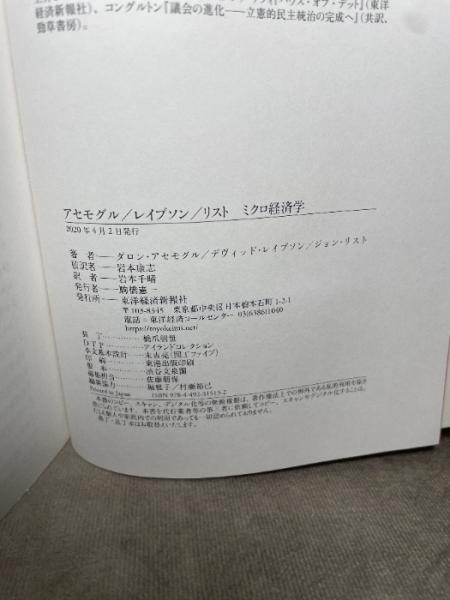 経済新報社)、コングルトン『議会の進化――立憲的民主統治の完成へ』(共訳,
勁草書房)。
アセモグル/レイブソン/リスト ミクロ経済学
2020年4月2日発行
著 者――ダロン・アセモグル/デヴィッド・レイブソン/ジョン・リスト
監訳者――岩本康志
訳 者――岩本千晴
発行者――駒橋憲一
発行所――東洋経済新報社
〒103-8345 東京都中央区日本橋本石町1-2-1
電話=東洋経済コールセンター 03(6386)1040
https://toyokeizai.net/
装 丁――橋爪朋世
DTP――アイランドコレクション
本文基本設計――末吉亮(図工ファイブ)
印 刷――東港出版印刷
製 本――渋谷文泉閣
編集担当――佐藤朋保
編集協力――堀雅子/村瀬裕己
Printed in Japan ISBN 978-4-492-31515-2
本書のコピー、スキャン、デジタル化等の無断複製は、著作権法上での例外である私的利用を除き
禁じられています。本書を代行業者等の第三者に依頼してコピー、スキャンやデジタル化することは、
たとえ個人や家庭内での利用であっても一切認められておりません。
落丁・乱丁本はお取替えいたします。